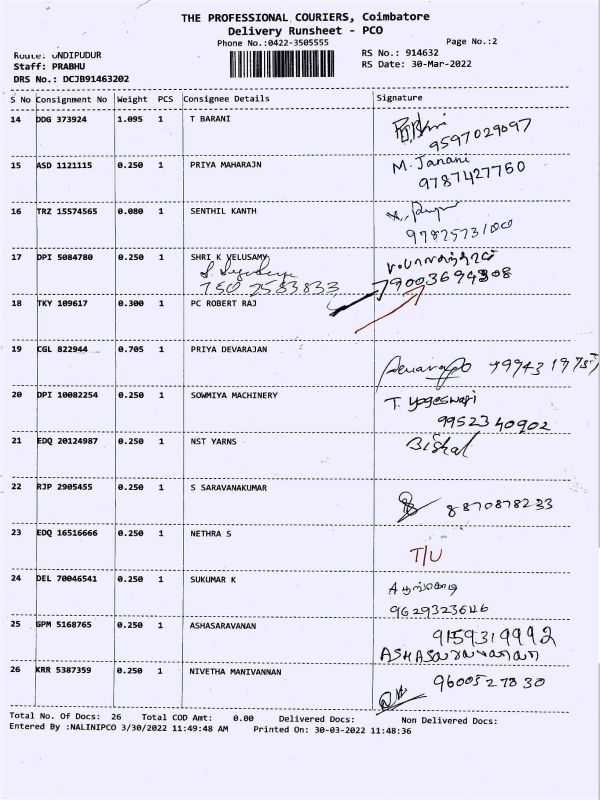 THE PROFESSIONAL COURIERS, Coimbatore
Delivery Runsheet - PCO
Phone No.:0422-3505555
Page No.:2
Route: ONDIPUDUR
RS No.: 914632
Staff: PRABHU
RS Date: 30-Mar-2022
DRS No.: DCJB91463202
S No Consignment No Weight PCS Consignee Details Signature
14 DDG 373924 1.095 1 T BARANI
9597029097
15 ASD 1121115 0.250 1 PRIYA MAHARAJN M. Janani
9787427760
16 TRZ 15574565 0.080 1 SENTHIL KANTH
17 DPI 5084780 0.250 1 SHRI K VELUSAMY
750 2583833 79003694308
18 TKY 109617 0.300 1 PC ROBERT RAJ
19 CGL 822944 0.705 1 PRIYA DEVARAJAN
20 DPI 10082254 0.250 1 SOWMIYA MACHINERY T. Yogeswari
9952340902
21 EDQ 20124987 0.250 1 NST YARNS Bishal
22 RJP 2905455 0.250 1 S SARAVANAKUMAR
8870878233
23 EDQ 16516666 0.250 1 NETHRA S
T/U
24 DEL 70046541 0.250 1 SUKUMAR K
9629323646
25 GPM 5168765 0.250 1 ASHASARAVANAN 9159319992
26 KRR 5387359 0.250 1 NIVETHA MANIVANNAN 9600527830
Total No. Of Docs: 26 Total COD Amt: 0.00 Delivered Docs: Non Delivered Docs:
Entered By :NALINIPCO 3/30/2022 11:49:48 AM Printed On: 30-03-2022 11:48:36